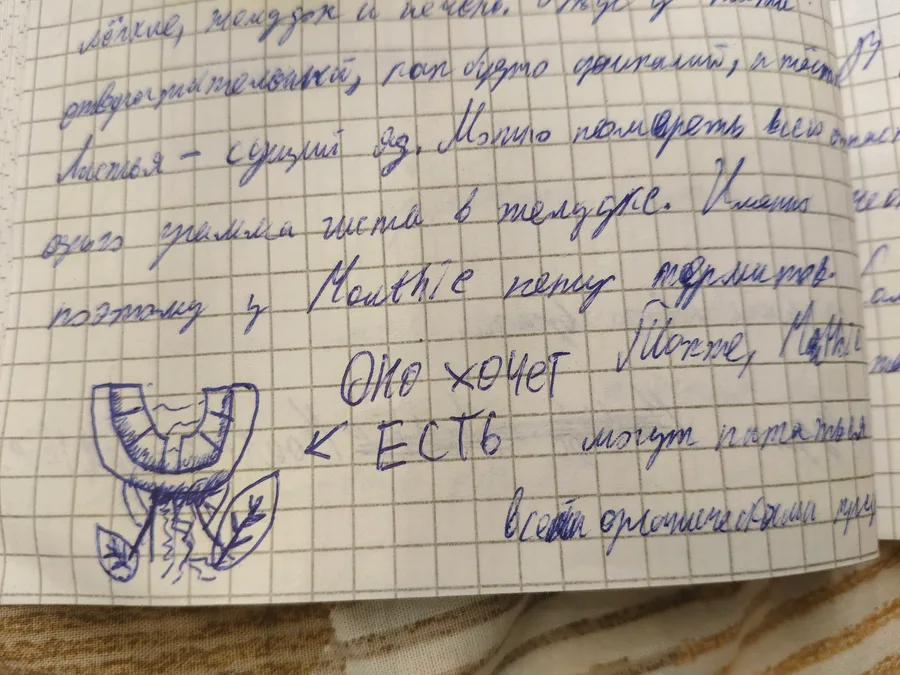 лёгкие, желудок и печень.
отвратительный, как будто
Листья – сущий яд. Можно помереть всего
одного грамма листа в желудке. Именно
поэтому у Mouthie нету термитов.
Также, Mouthie
ОНО ХОЧЕТ
< ЕСТЬ
могут питаться
всеми органическими